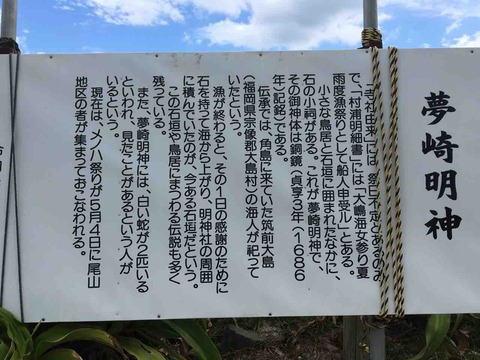 夢崎明神
「寺社由来」には「祭日不定とあるのみ
で、「村浦明細書」には「大嶋海女参り夏
雨度漁祭りとして船人申受ル」とある。
小さな鳥居と石垣に囲まれたなかに、
石の小祠がある。これが夢崎明神で、
その御神体は銅鏡(貞享3年(1686
年)記銘)である。
伝承では、角島に来ていた筑前大島
(福岡県宗像郡大島村)の海人が祀って
いたという。
漁が終わると、その1日の感謝のために
石を持って海から上がり、明神社の周囲
に積んでいたのが、今ある石垣だという。
この石垣や鳥居にまつわる伝説も多く
残っている。
また、夢崎明神には、白い蛇が2匹いる
といわれ、見たことがあるという人が
いるという。
現在は、メノハ祭りが5月4日に尾山
地区の者が集まっておこなわれる。